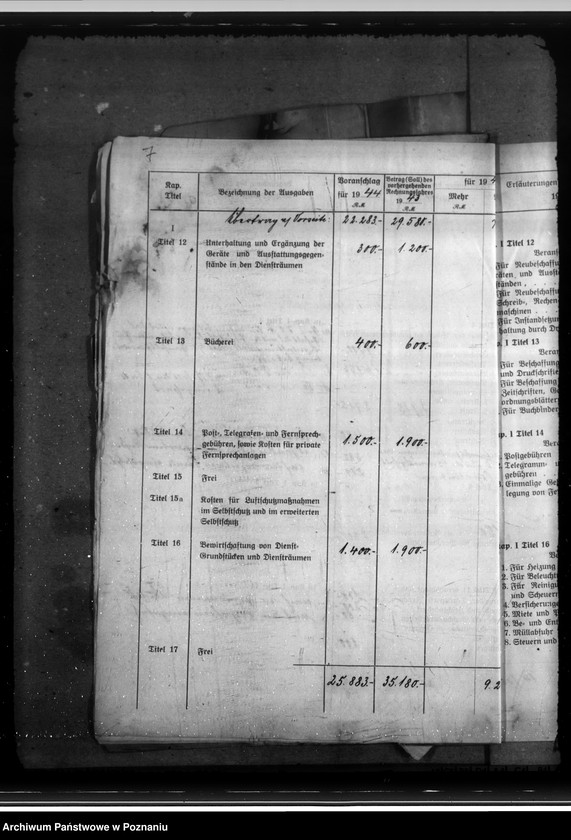 7
Kap.
Titel
Bezeichnung der Ausgaben
Voranschlag
für 1944
RM
Betrag (Soll) des
vorhergehenden
Rechnungsjahres
1943
RM
für 19
Mehr
RM
Erläuterungen
Übertrag 22.283.- 29.580.-
I
Titel 12 Unterhaltung und Ergänzung der 300.- 1.200.-
Geräte und Ausstattungsgegen-
stände in den Diensträumen
Titel 13 Bücherei 400.- 600.-
Titel 14 Post-, Telegrafen- und Fernsprech-
gebühren, sowie Kosten für private 1.500.- 1.900.-
Fernsprechanlagen
Titel 15 Frei
Titel 15a Kosten für Luftschutzmaßnahmen
im Selbstschutz und im erweiterten
Selbstschutz
Titel 16 Bewirtschaftung von Dienst- 1.400.- 1.900.-
Grundstücken und Diensträumen
Titel 17 Frei
25.883.- 35.180.- 9.2
1 Titel 12
Für Neubeschaffu
räten und Ausst
ständen
Für Neubeschaffu
Schreib-, Rechen
maschinen
Für Instandsetzu
haltung durch
1 Titel 13
Für Beschaffung
und Druckschrifte
Für Beschaffung
Zeitschriften, Ge
ordnungsblätter
Für Buchbinder
p. 1 Titel 14
Postgebühren
Telegramm- u
gebühren
Einmalige Ge
legung von Fe
ap. 1 Titel 16
1. Für Heizung
2. Für Beleucht
3. Für Reinigu
und Scheuer
4. Versicherung
5. Miete und P
6. Be- und Ent
7. Müllabfuhr
8. Steuern und
Archiwum Państwowe w Poznaniu